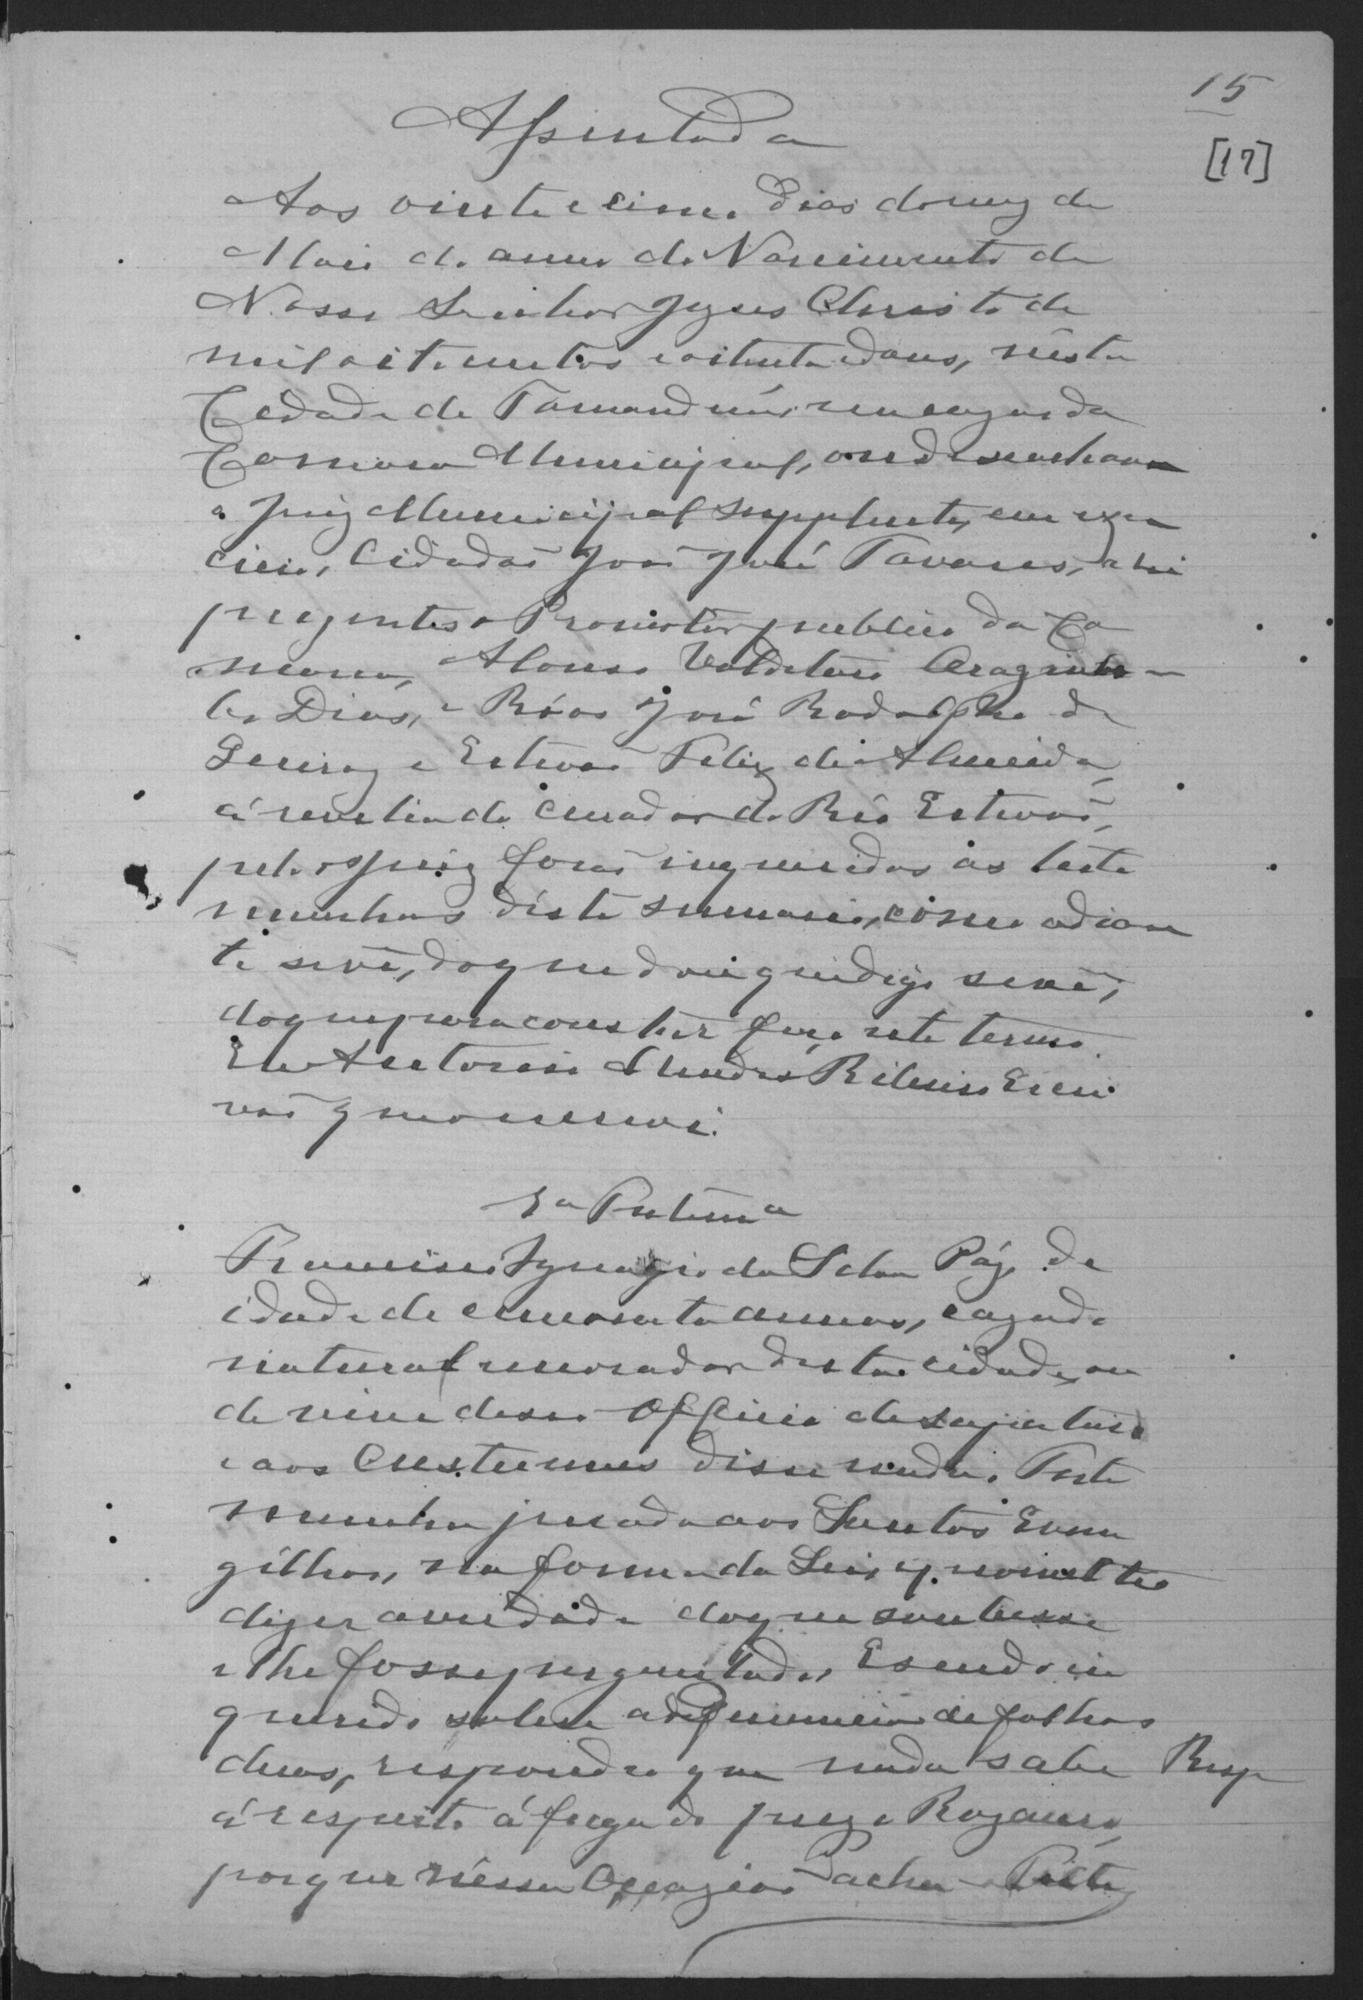 15
[17]
Assentada
Aos vinte e cinco dias do mez de
Maio do anno do Nascimento de
Nosso Senhor Jezus Christo de
mil oitocentos e oitenta e dous, nésta
Cidade de Tamanduá, em caza da
Camara Municipal, onde se achava
o Juiz Municipal Supplente, em exer
cicio, Cidadaõ Joaõ José Tavares, e hi
prezentes o Promotor publico da Co
marca, Alonso
Dias, e Réos José Rodolpho de
Queiroz e Estevaõ Feliz de Almeida,
á revelia do Curador do Réo Estevaõ,
pelo Juiz foraõ inqueridas as teste
munhas déste summario, como adian
te se vê, do que dou que digo se vê,
do que para constar faço este termo.
Eu Antonio Mendes Ribeiro Escri
vaõ que o escrevi.
1a Testema
Francisco Ignazio da Silva Páz, de
idade de cincoenta annos, cazado
natural e morador desta cidade, on
de vive de seo Officio de sapateiro
e aos Custumes disse nada. Teste
munha jurada aos Santos Evan
gélhos, na forma da Lei, e prometteo
dizer a verdade do que soubesse
e lhe fosse perguntado, E sendo in
querido sobre a denuncia de folhas
duas, respondeo que nada sabe Resp
á respeito á fuga do prezo Rozendo,
porque néssa Occaziaõ achava-se